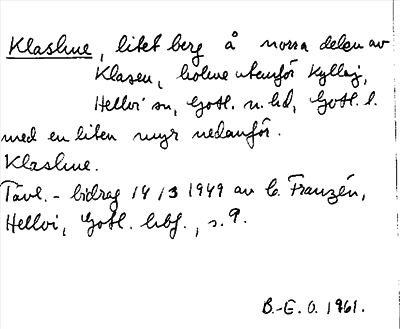 Klaslme, litet berg å norra delen av
Klasen, holme utanför Kyllej,
Hellvi sn, Gotl. n. hd, Gotl. l.
med en liten myr nedanför.
Klaslme.
Tävl.-bidrag 14/3 1949 av C. Franzén,
Hellvi, Gotl. hbf., s. 9.
B.-E. O. 1961.